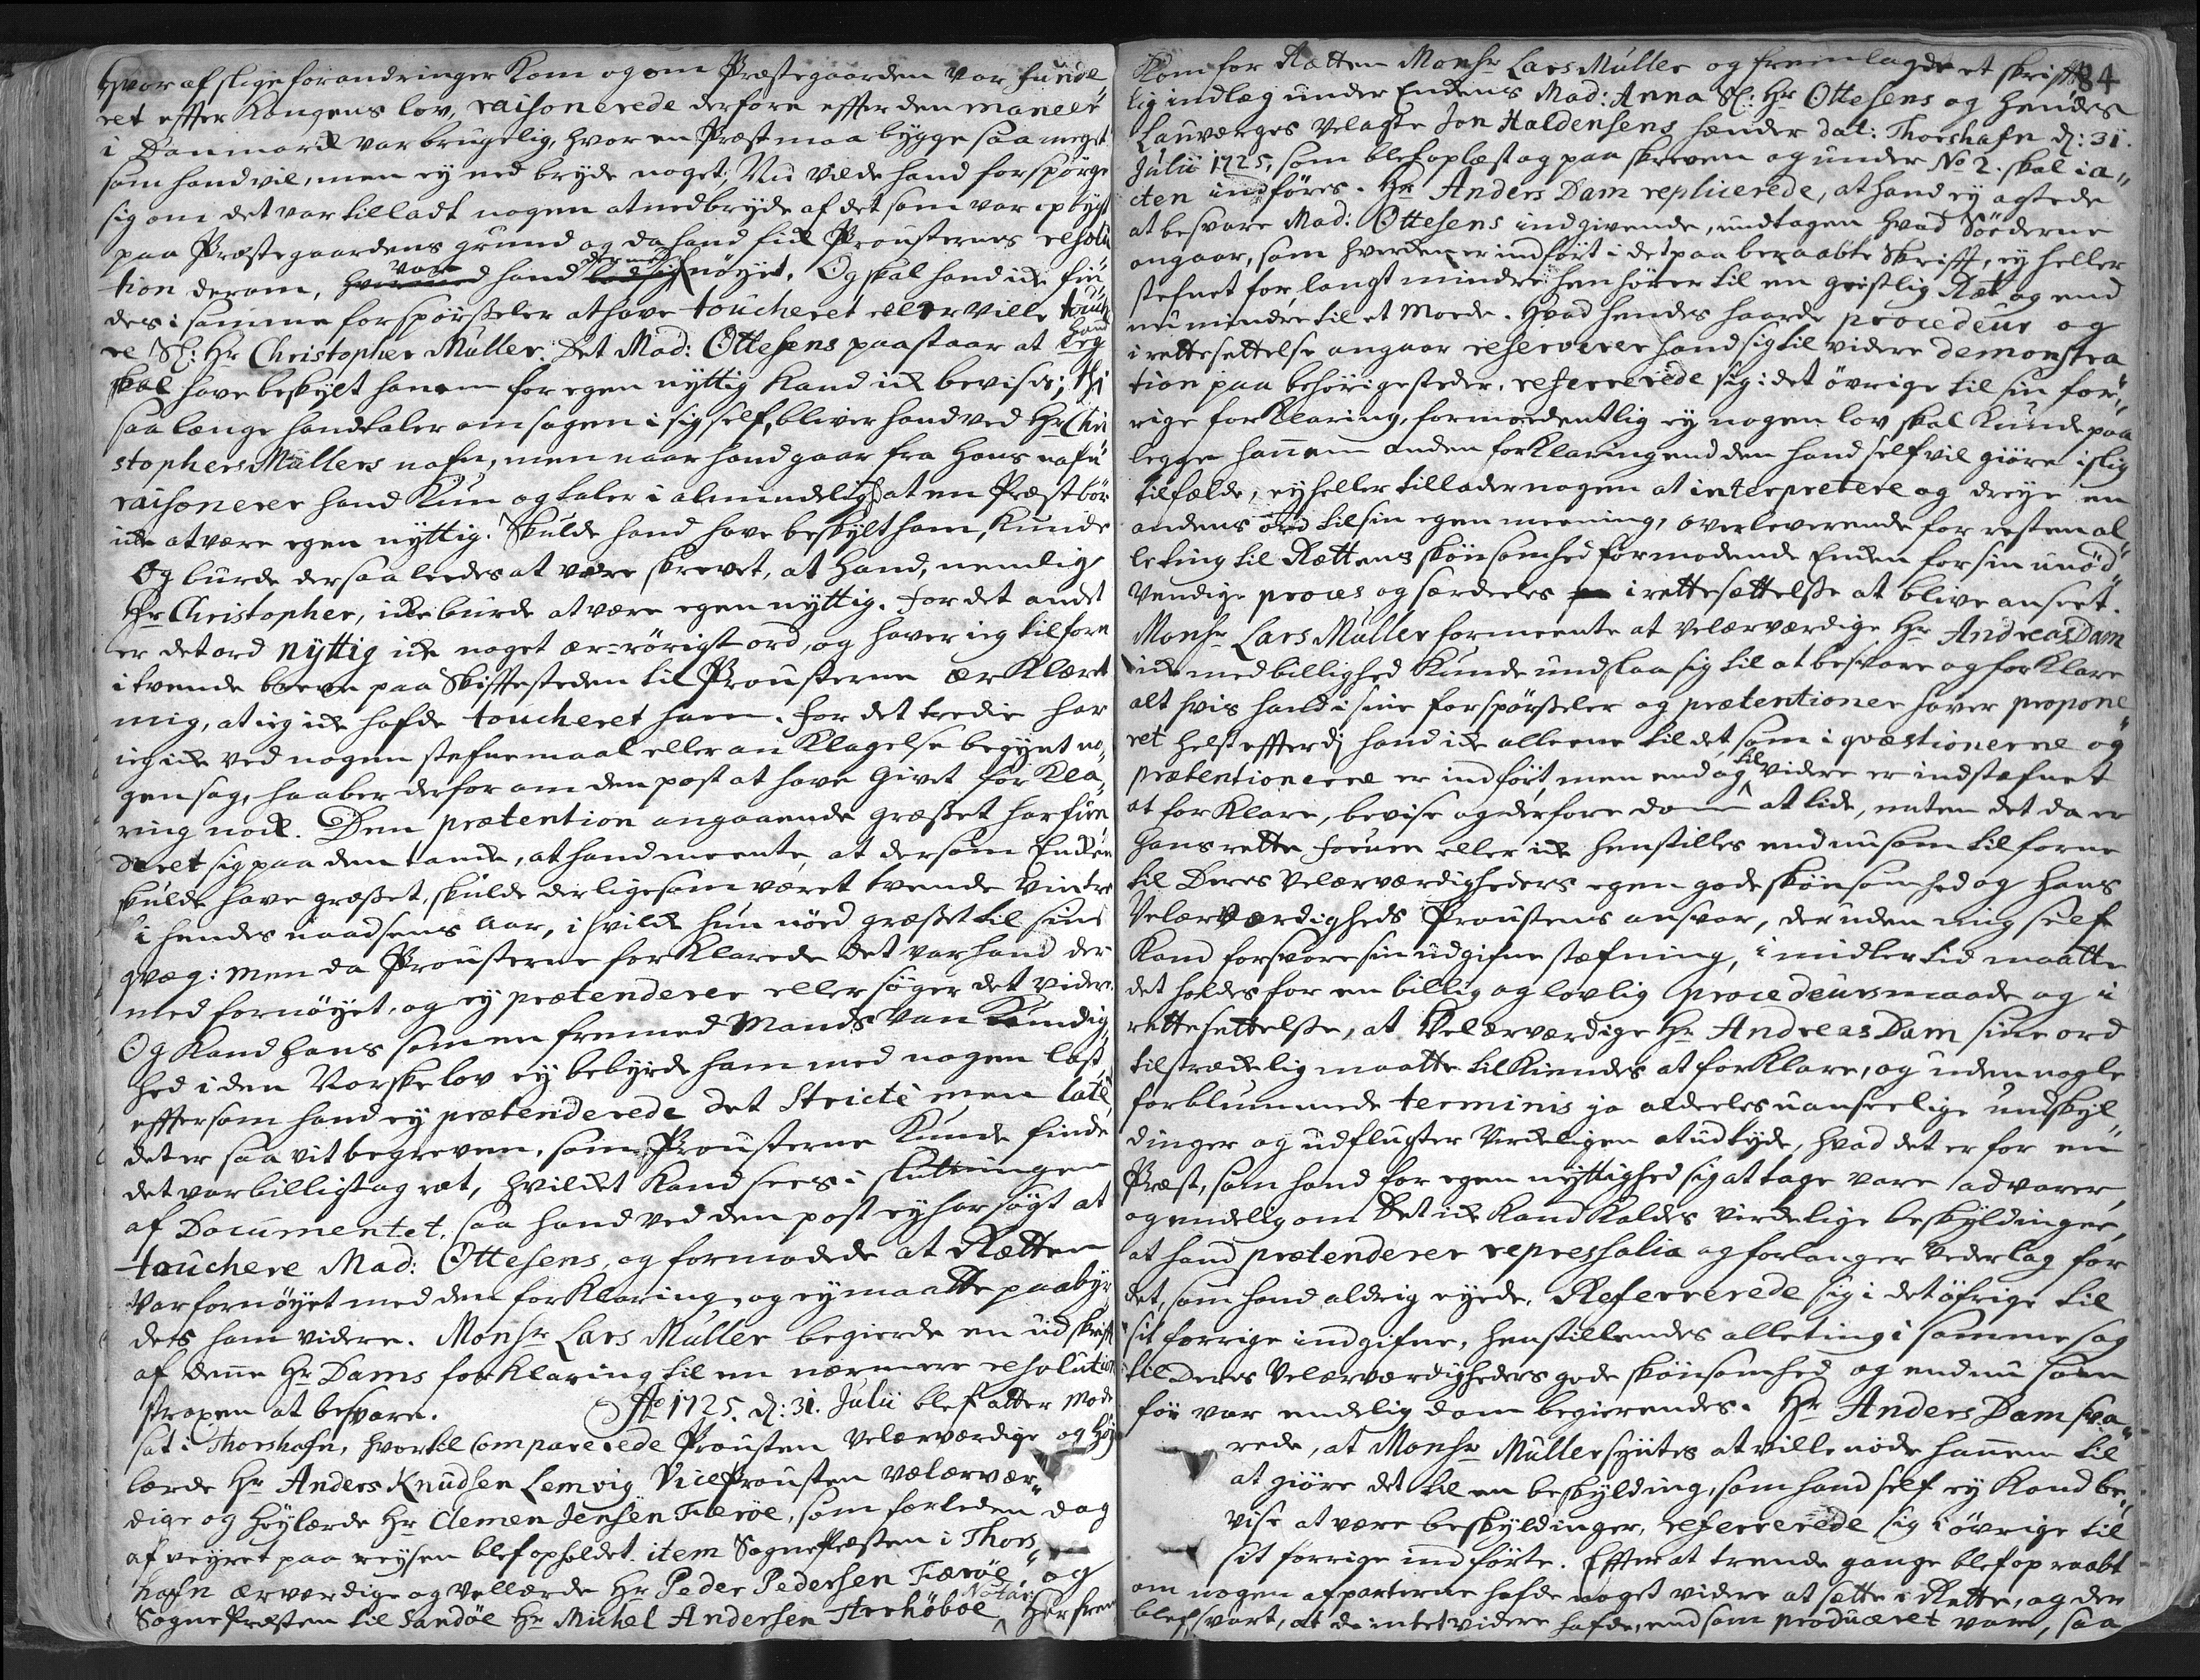 hvor af slige forandringer kom og om Præstegaarden var funde
ret effter Kongens lov, raisonerede derfore effter den maneer
i Danmark var brugelig, hvor en Præst maa bygge saa meget
som hand vil, men ey ned bryde noget; Nu vilde hand forspørge
sig om det var tilladt nogen at nedbryde af det som var opbygt
paa Præstegaardens grund og da hand fik Prousternes resolu
tion derom, var hand dermed nøyet. Og skal hand ik fin¸
des i samme forspørßeler at have toucheret eller ville touche
re Sl: Hr Christopher Müller. Det Mad: Ottesens paastaar at hand
skal have beskylt hanem for egen nyttig kand ik bevises; thi
saa længe hand taler om sagen i sig self, bliver hand ved Hr Chri
stophers Müllers nafn, men naar hand gaar fra hans nafn
raisonerer hand kun og taler i almindelighed at en Præst bør
ike at være egen nyttig. Skulde hand have beskylt ham, kunde
Og burde der saaledes at være skrevet, at hand, nemlig
Hr Christopher, ike burde at være egennyttig. For det andet
er det ord nyttig ik noget ær-rørigt ord, og haver ieg tilforn
i tvende breve paa Skiftestedet til Prousterne ærklært
mig, at ieg ik hafde toucheret ham. For det tredie har
ieg ik ved nogen stefnemaal eller anklagelse begynt no¸
gen sag, haaber derfor om den post at have givet forkla¸
ring nok. Den prætention angaaende græsset har fun
deret sig paa den tanke, at hand meente, at dersom Enken
skulde have græsset, skulde der ligesom været tvende Vintre
i hendes naadsens Aar, i hvilke hun nød græsset til sine
qvæg: men da Prousterne forklarede det var hand der
med fornøyet, og ey prætenderer eller søger det videre.
Og kand hans som en fremmed Mands Van kundig¸
hed i den Norske lov ey bebyrde ham med nogen last,
effter som hand ey prætenderede det Stricté men laté,
det er saa vit begreven, som Prousterne kunde finde
det var billigt og ret, hvilket kand sees i sluttningen
af Documentet, saa hand ved den post ey har søgt at
touchere Mad: Ottesens, og formodede at Retten
var fornøyet med den forklaring, og ey maatte paabyr
des ham videre. Monsr Lars Müller begierde en udskrift
af denne Hr Dams forklaring til en nærmere resolution
strapen at besvare. Ao 1725. d: 31. Julii blef atter Mode
sat i Thorshafn, hvortil comparerede Prousten Velærværdige og Høy
lærde Hr Anders Knudsen Lemvig Vice Prousten Velærvær¸
dige og Høylærde Hr Clemen Jensen Færøe, som forleden dag
af veyret paa reysen blef opholdet. item SognePræsten i Thors¸
hafn ærværdige og Vellærde Hr Peder Pedersen Færøe, og
SognePræsten til Sandøe Hr Michel Andersen Heehøboe Notar: Herfrem
84
Kom for Retten Monsr Lars Müller og fremlagde et skrifft
lig indlæg under Enkens Mad: Anna Sl: Hr Ottesens og hendes
Lauværges Velagte Jon Haldensens hænder dat: Thorshafn d: 31.
Julii 1725, som blef oplæst og paa skreven og under No 2. skal i a¸
cten indføres. Hr Anders Dam replicerede, at hand ey agtede
at besvare Mad: Ottesens indgivende, undtagen hvad Søederne
angaar, som hverken er indført i det paa beraabte Skrifft, ey heller
stefnet for, langt mindre henhører til en geistlig Ret, og end
nu mindre til et Mode. Hvad hendes haarde procedeur og
irettesettelse angaar reserverer hand sig til videre demonstra
tion paa behørige steder. refererede sig i det øvrige til sin for¸
rige forklaring, formodentlig ey nogen lov skal kunde paa
legge hannem anden forklaring end den hand self vil giøre i slig
tilfælde, ey heller tillader nogen at interpretere og dreye en
andens ord til sin egen meening, overleverende for resten al¸
le ting til Rettens skiønsomhed formodende Enken for sin unød¸
vendige proces og særdeles irettesættelse at blive anseet.
Monsr Lars Müller formeente at velærværdige Hr Andreas Dam
ik med billighed kunde undslaa sig til at besvare og forklare
alt hvis hand i sine forspørßeler og prætentioner haver propone
ret helst effterdj hand ik alleene til det som i qvæstionerne og
prætentionerne er indført, men end og til videre er indstæfnet
at forklare, bevise og derfore dom at lide, enten det da er
hans rette forum eller ik henstilles endnu som tilforne
til Deres Velærværdigheders egen gode skiønsomhed og hans
Velærværdigheds Proustens ansvar, der uden mig self
kand forsvare sin udgifne stæfning, i midlertid maatte
det holdes for en billig og lovlig procedeursmaade og i
rettesettelse, at Velærværdige Hr Andreas Dam sine ord
tilstrækelig maatte tilkiendes at forklare, og uden nogle
forblummede terminis ja aldeeles uanseelige undskyl¸
dinger og udflugter Virkeligen at udtyde, hvad det er for en
Præst, som hand for egen nyttighed sig at tage vare advarer,
og endelig om det ik kand kaldes virkelige beskyldinger,
at hand prætenderer repressalia og forlanger vederlag for
det, som hand aldrig eyede. Refererede sig i det øfrige til
sit forrige indgifne, henstillendes alle ting i samme sag
til Deres Velærværdigheders gode skiønsomhed og endnu som
før var endelig dom begierendes. Hr Anders Dam sva¸
rede, at Monsr Müller syntes at ville nøde hannem til
at giøre det til en beskylding, som hand self ey kand be¸
vise at være beskyldinger, refererede sig i øvrige til
sit forrige indførte. Effter at trende gange blef op raabt
om nogen af parterne hafde noget videre at sætte i Rette, og der
blef svart, at de intet videre hafde, end som produceret var, saa